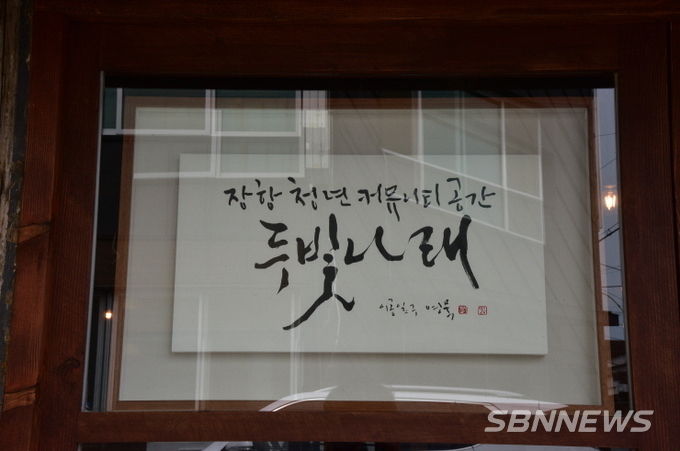 장항 청년 커뮤니티 공간
두빛나래
SBNNEWS